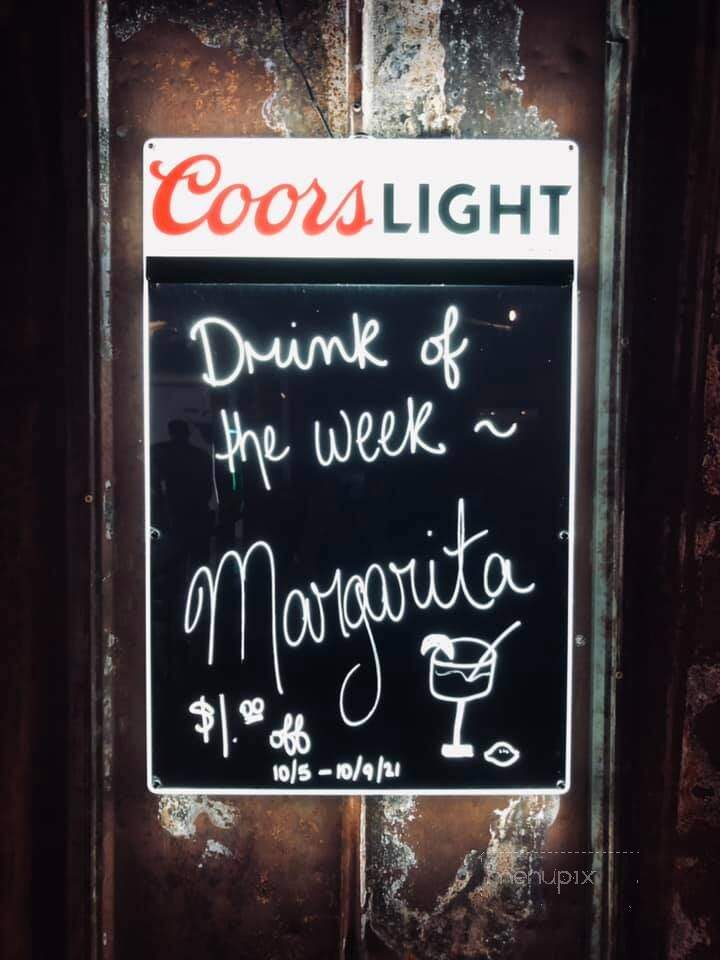 Coors LIGHT
Drink of
the week ~
Margarita
$1.00 off
10/5 - 10/9/21
menupix